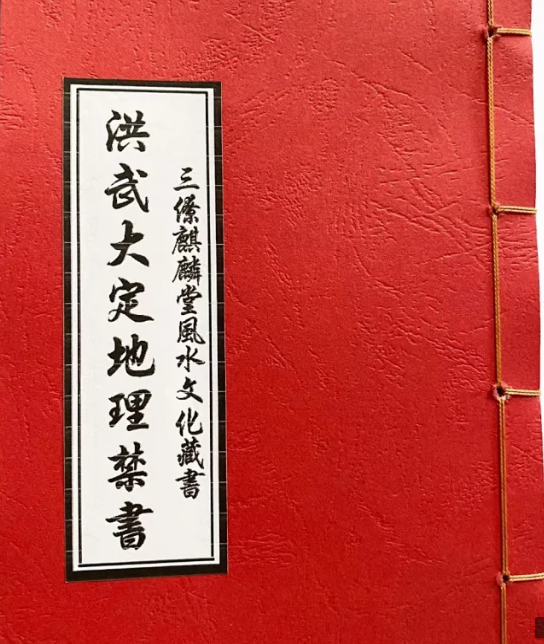 三僚麒麟堂風水文化藏書
洪武大定地理禁書